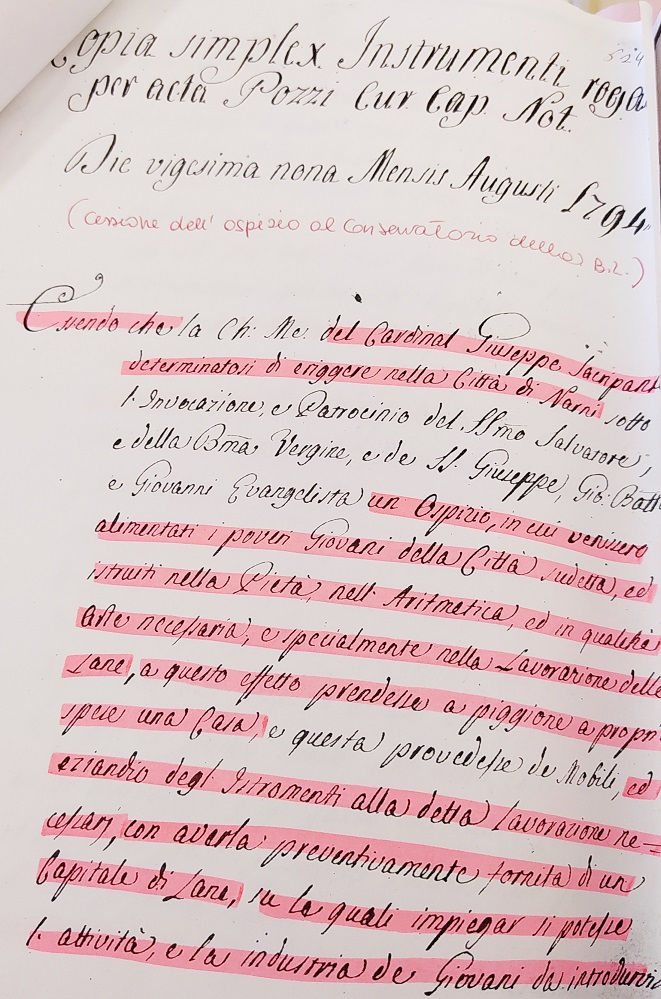 524
Copia simplex Instrumenti roga
per acta Pozzi Cur. Cap. Not.
Die vigesima nona Mensis Augusti 1794
(cessione dell' ospizio al Conservatorio della B.L.)
Essendo che la Ch: Me: del Cardinal Giuseppe Sacripant
determinatosi di eriggere nella Città di Narni sotto
l'Invocazione, e Patrocinio del SSmo Salvatore,
e della Bma Vergine, e de SS. Giuseppe, Gio: Batt
e Giovanni Evangelista un Ospizio, in cui venissero
alimentati i poveri Giovani della Città sudetta, ed
istruiti nella Pietà, nell'Aritmetica, ed in qualche
arte necessaria, e specialmente nella Lavorazione delle
Lane, a questo effetto prendesse a piggione a propri
spese una Casa, e questa provedesse de Mobili, ed
eziandio degl'Istromenti alla detta Lavorazione ne=
cessarj, con averla preventivamente fornita di un
Capitale di Lane, su le quali impiegar si potesse
l'attività, e la industria de Giovani da introdurvisi